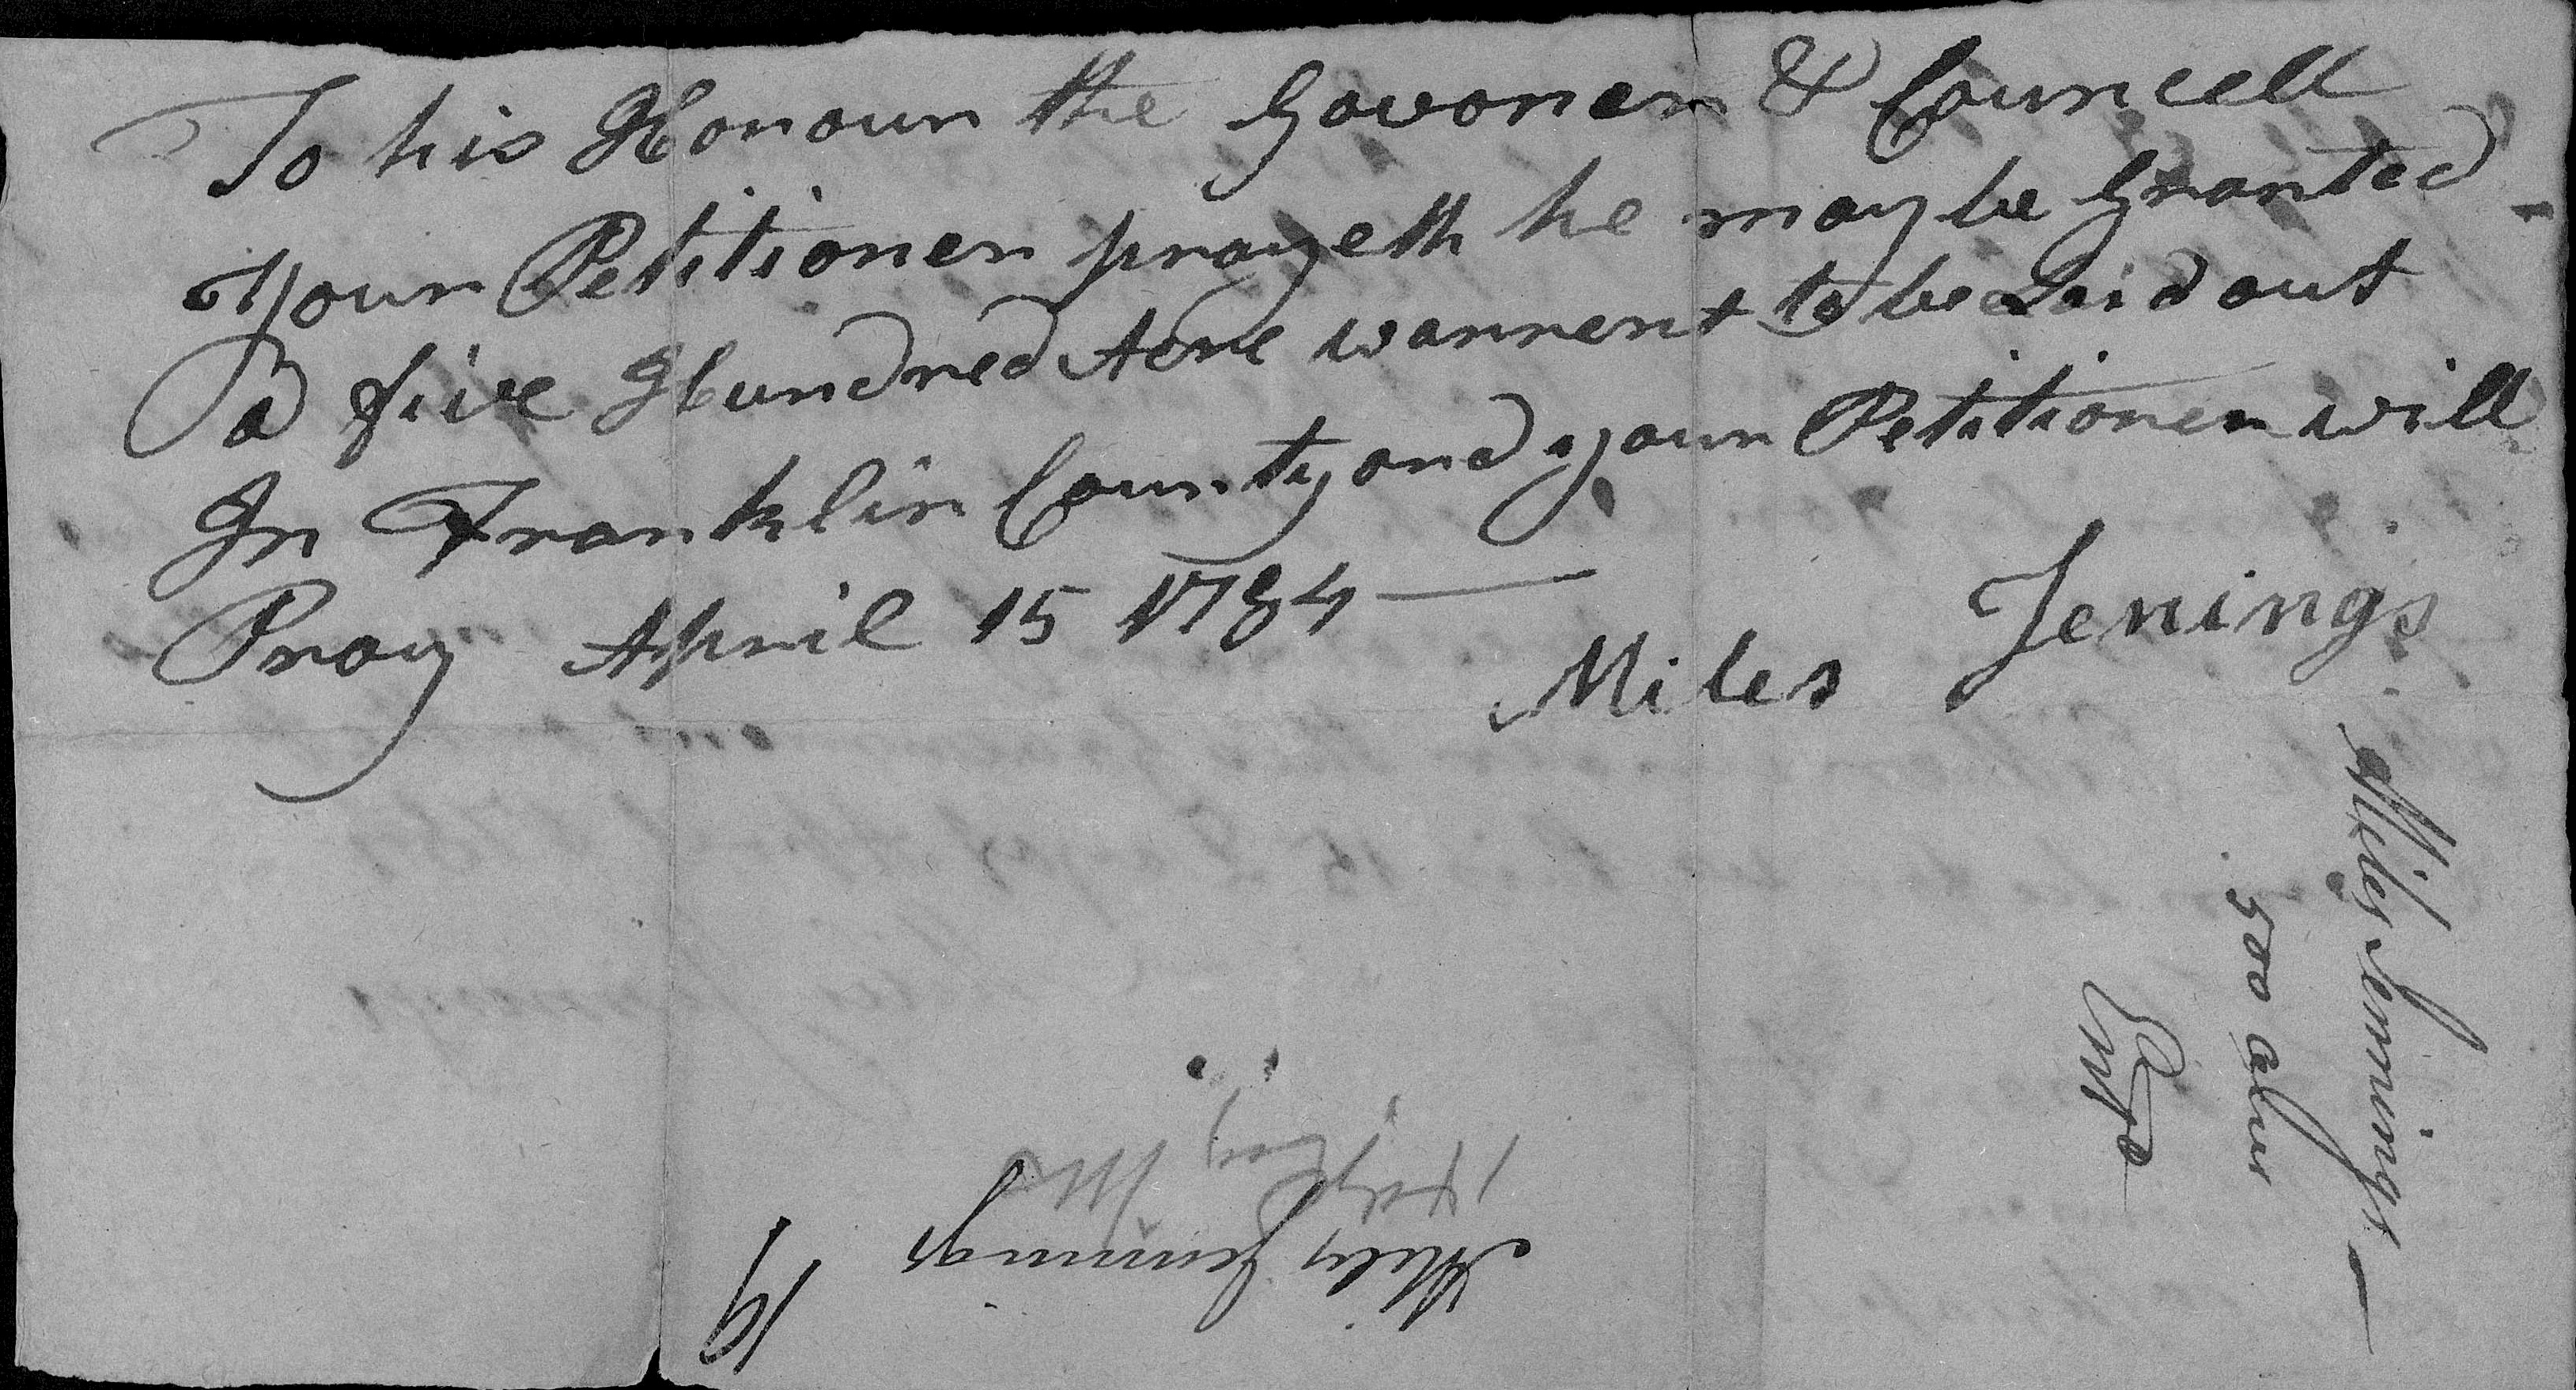 To his Honour the Govoner & Councell
Your Petitioner prayeth he may be Granted
a five Hundred Acre warrent to be Laid out
In Franklin County and your Petitioner will
Pray April 15 1784
Miles Jenings
Miles Jennings
500 acres
Miles Jennings
19